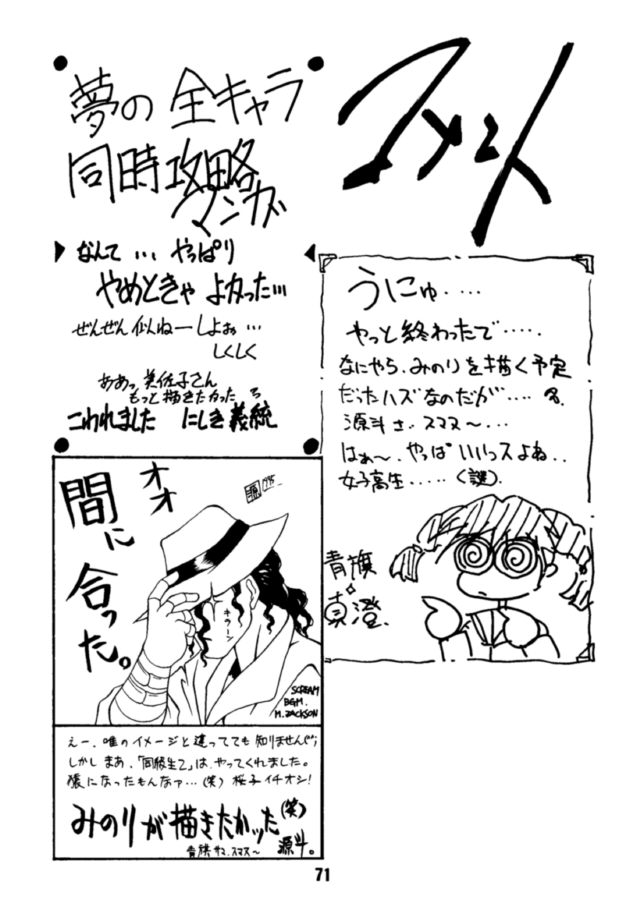 コメント
夢の全キャラ
同時攻略
マンガ
なんて…やっぱり
やめときゃよかった…
ぜんぜん似ねーしよぉ…
しくしく
ああっ美佐子さん
もっと描きたかったっ
こわれました にしき義統
うにゅ‥‥
やっと終わったで‥‥‥
なにやら、みのりを描く予定
だったハズなのだが‥‥
源斗さ、スマヌ〜‥‥
はぁ〜、やっぱいいっスよね‥
女子高生‥‥‥（謎）
青旗真澄
オオ
間に
合った。
キラーン
SCREAM
BGM.
M.JACKSON
えー、唯のイメージと違ってても知りませんぜ；
しかしまあ、「同級生2」は、やってくれました。
猿になったもんなァ…（笑）桜子イチオシ！
みのりが描きたかッた（笑）
源斗。
青旗サマ、スマス〜
71